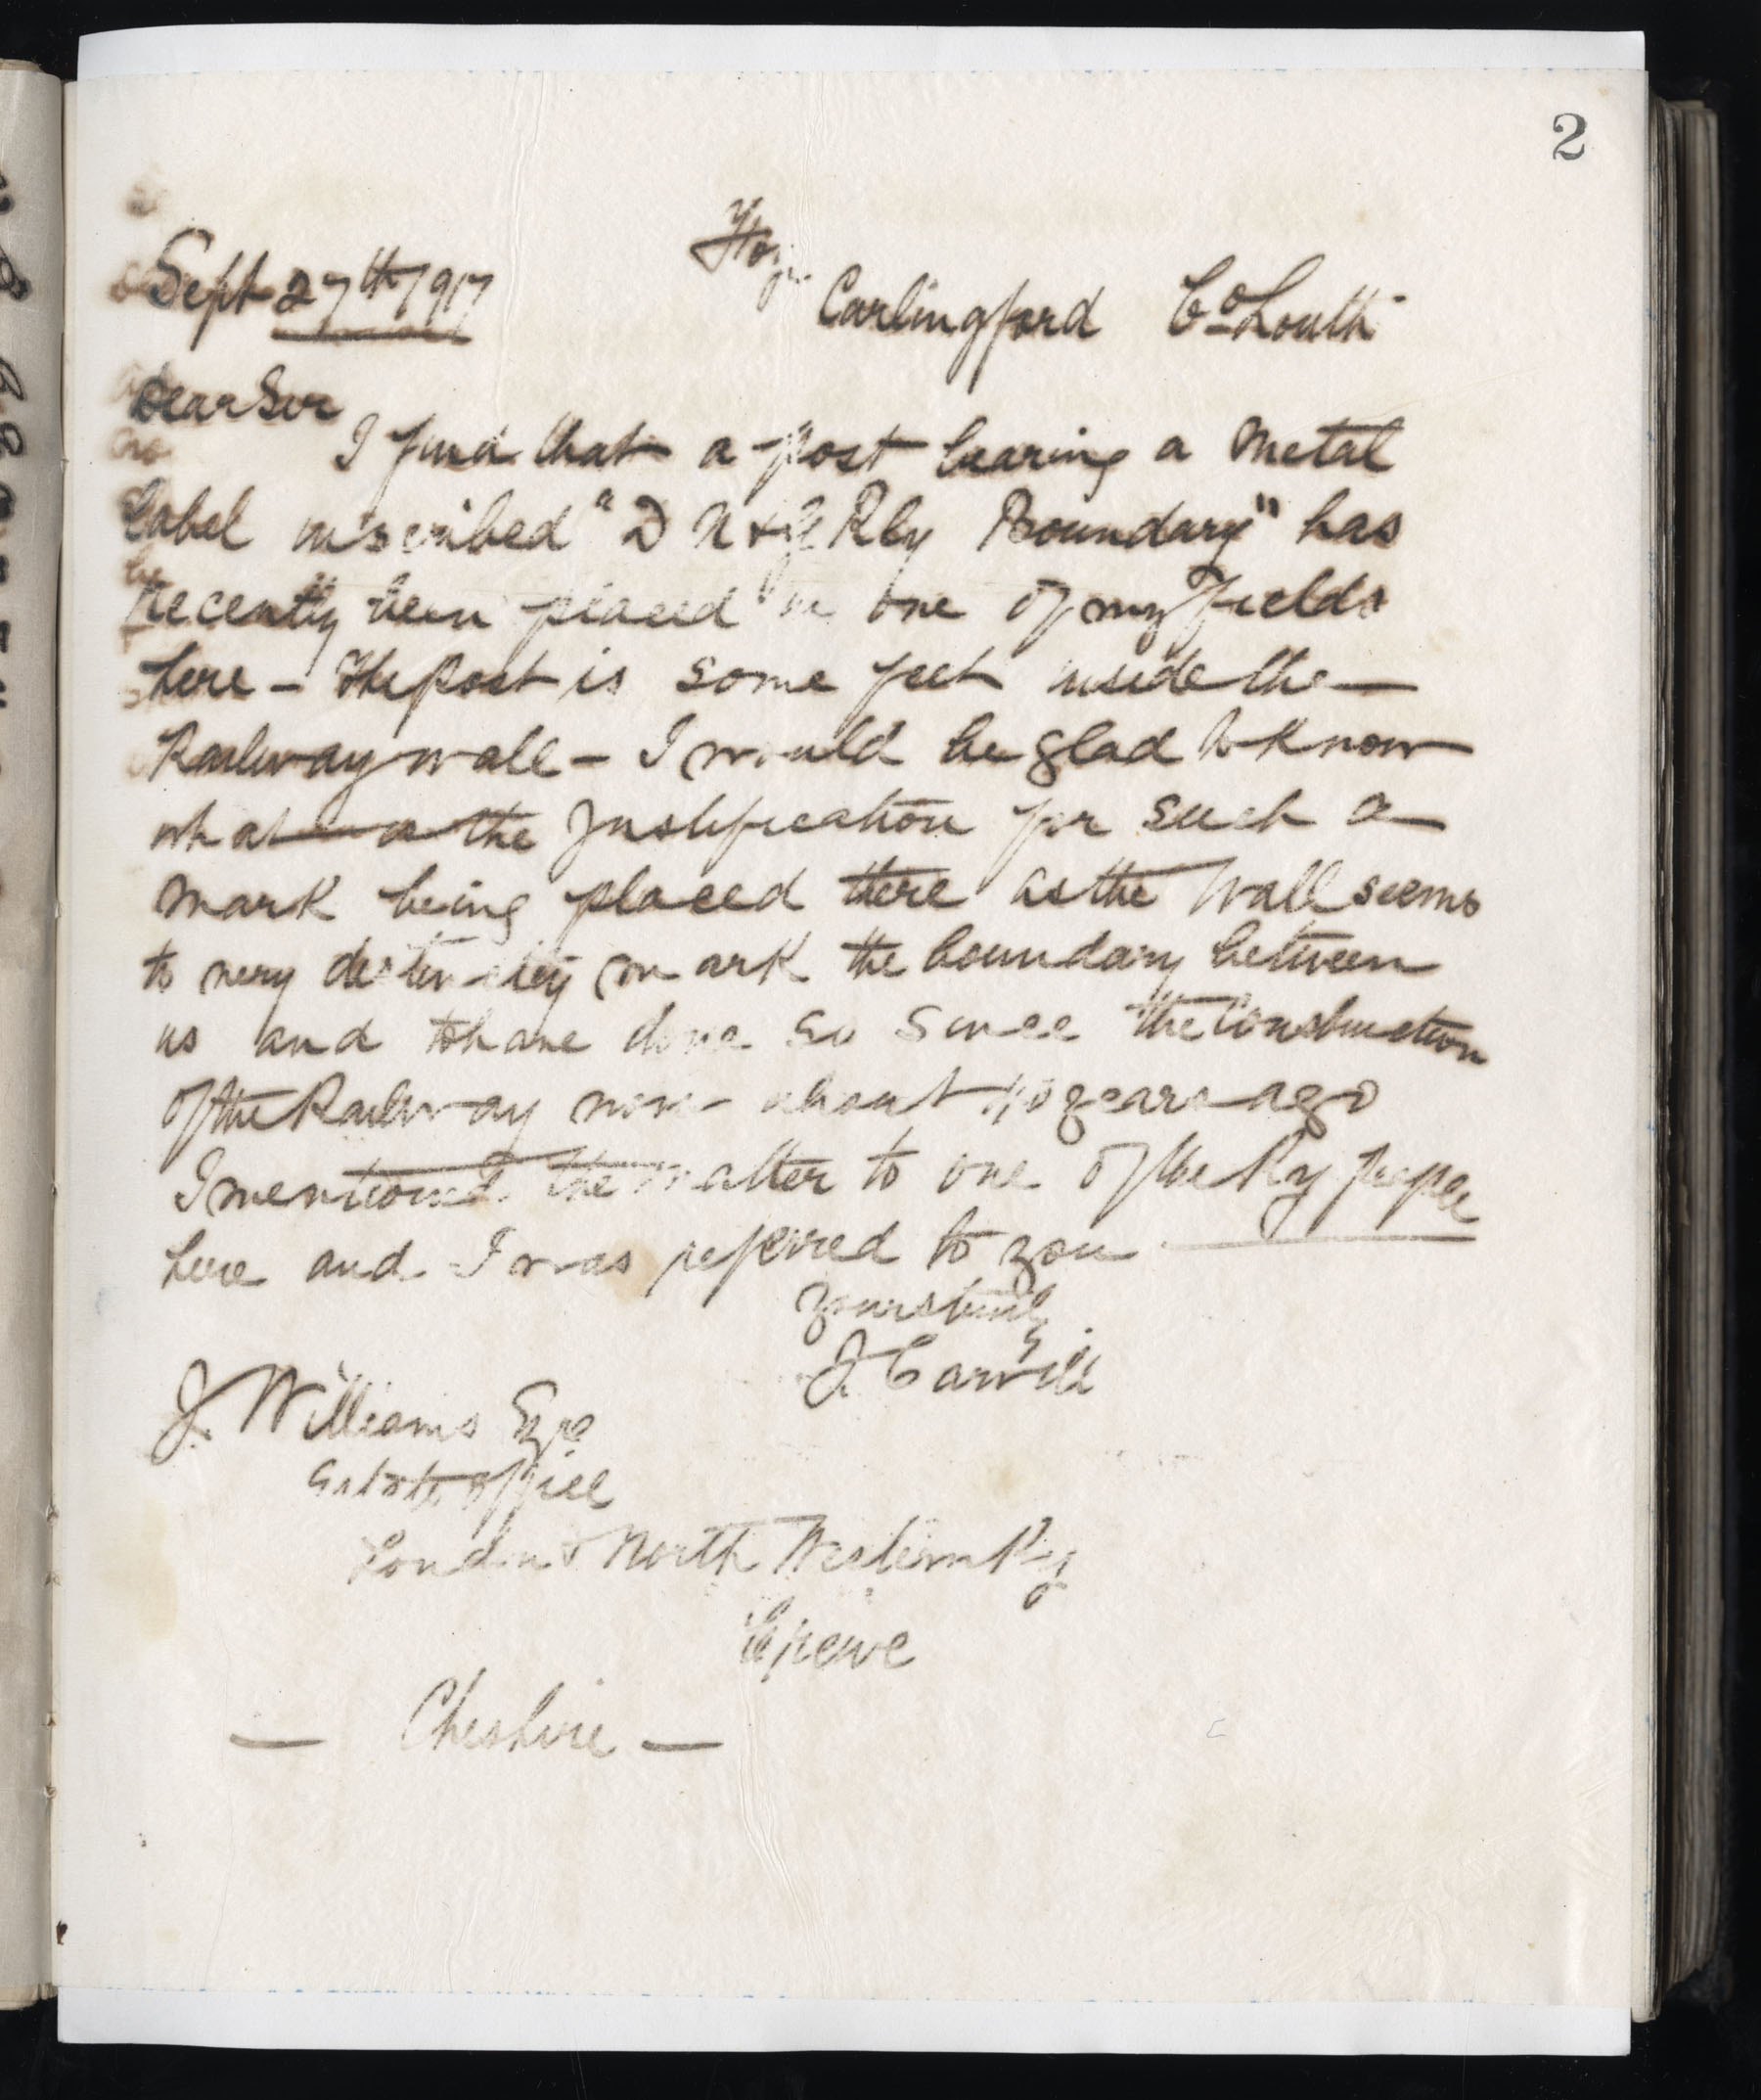 2
Sept 27th 1917
Carlingford Co Louth
Dear Sir
I find that a post bearing a Metal
Label inscribed "D N & G Rly Boundary" has
recently been placed in one of my Fields
here - The Post is some feet inside the —
Railway wall - I would be glad to know
what is the Justification for such a
mark being placed there as the Wall seems
to very distinctly mark the boundary between
us and to have done so since the Construction
of the Railway now about 40 years ago
I mentioned the matter to one of the Ry people
here and I was referred to you
Yours truly
J. Carvill
J. Williams Esqre
Estate Office
London & North Western Ry
Crewe
— Cheshire —